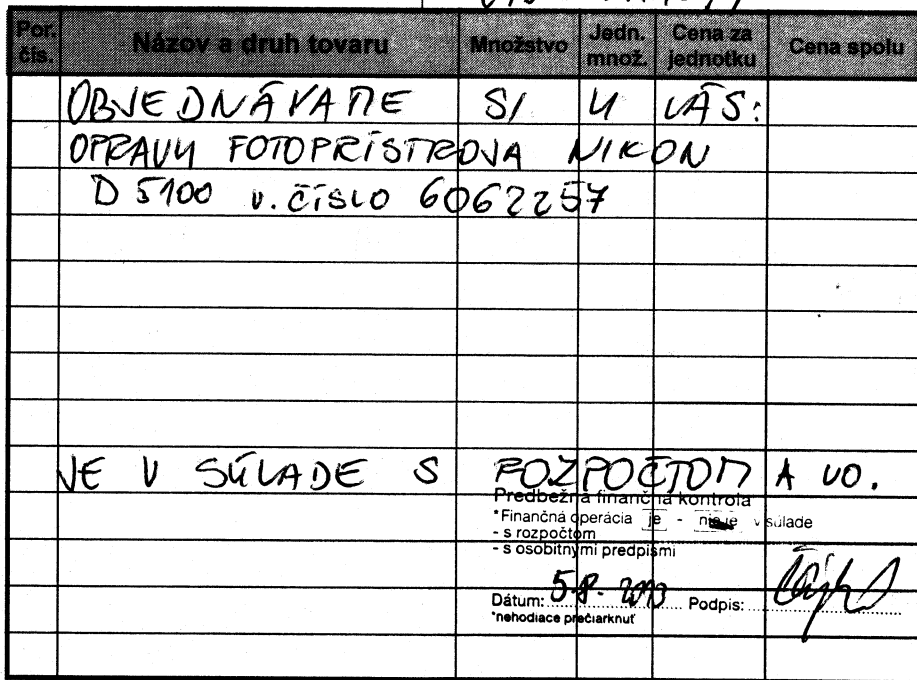 Por. čís. Názov a druh tovaru Množstvo Jedn. množ. Cena za jednotku Cena spolu
OBJEDNÁVAME SI U VÁS:
OPRAVU FOTOPRÍSTROJA NIKON
D 5100 v. ČÍSLO 6062257
JE V SÚLADE S ROZPOČTOM A VO.
Predbežná finančná kontrola
*Finančná operácia je - nie je v súlade
- s rozpočtom
- s osobitnými predpismi
Dátum: 5.8. Podpis:
*nehodiace prečiarknuť